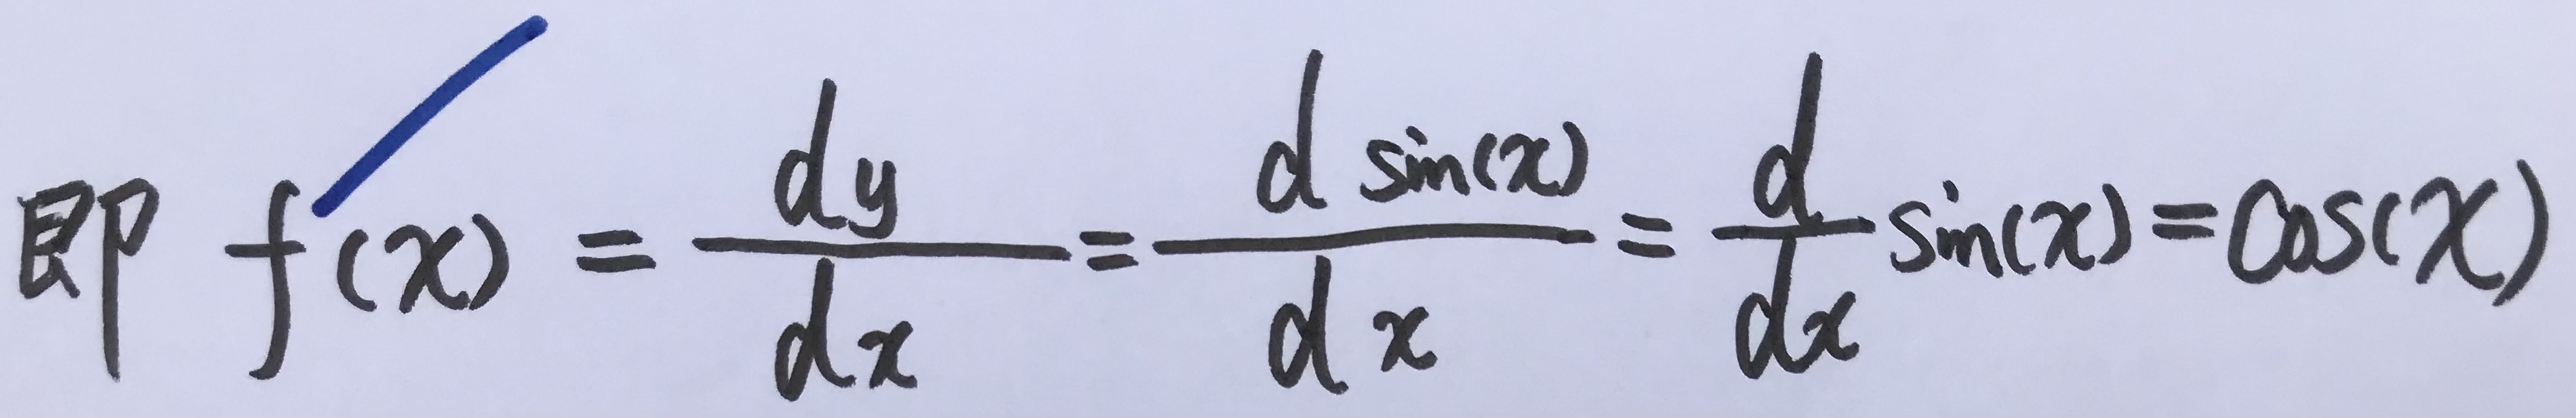 即 f′(x) = dy/dx = d sin(x)/dx = d/dx sin(x) = cos(x)